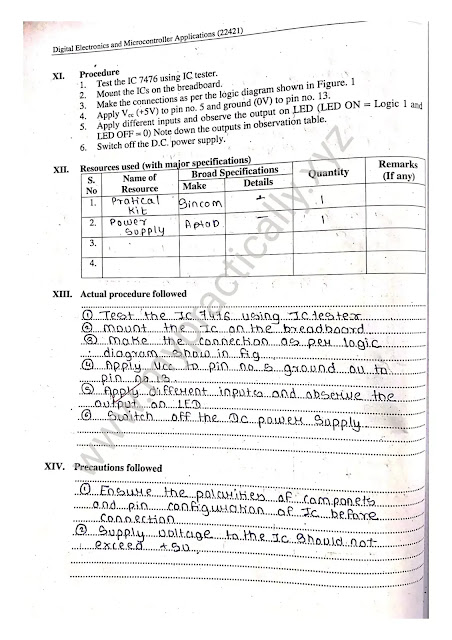 Digital Electronics and Microcontroller Applications (22421)
XI. Procedure
1. Test the IC 7476 using IC tester.
2. Mount the ICs on the breadboard.
3. Make the connections as per the logic diagram shown in Figure. 1
4. Apply Vcc (+5V) to pin no. 5 and ground (0V) to pin no. 13.
5. Apply different inputs and observe the output on LED (LED ON = Logic 1 and
LED OFF = 0) Note down the outputs in observation table.
6. Switch off the D.C. power supply.
XII. Resources used (with major specifications)
S. No Name of Resource Broad Specifications Quantity Remarks (If any)
Make Details
1. Pratical Kit Sincom - 1
2. Power Supply Aplab - 1
3.
4.
XIII. Actual procedure followed
① Test the IC 7476 using IC tester
② Mount the Ic on the breadboard
③ Make the connection as per logic
diagram show in fig
④ Apply Vcc to pin no 5 ground ov to
pin no 13
⑤ Apply different inputs and observe the
output on LED
⑥ Switch off the DC power Supply
XIV. Precautions followed
① Ensure the polarities of componets
and pin configuration of Ic before
connection
② Supply voltage to the Ic Should not
exceed +5v